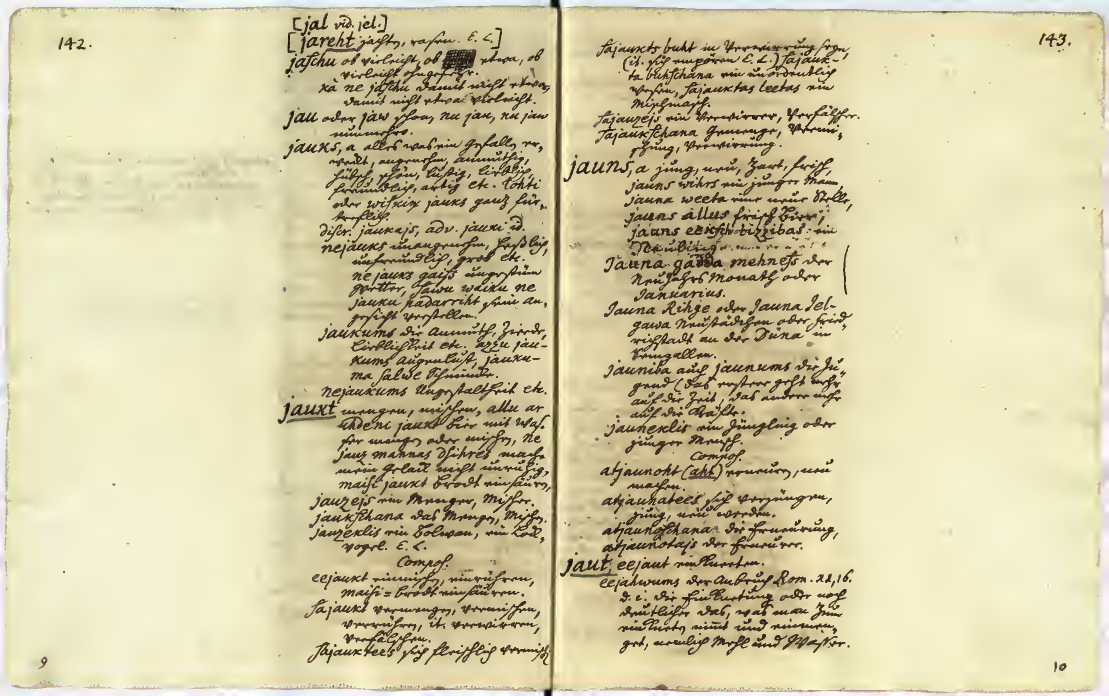 142.
[jal vid. jel.]
[jareht jachten, rasen. E. L.]
jaschu ob vieleicht, ob etwa, ob
vieleicht ohngefehr.
ka ne jaschu damit nicht etwa,
damit nicht etwa vieleicht.
jau oder jaw schon, nu jau, nu jaw
nunmehro.
jauks, a alles was ein gefallen er-
weckt, angenehm, anmuthig,
hübsch, schön, lustig, lieblich,
freundlich, artig etc. lohti
oder wisskin jauks ganz für-
treflich.
discr. jaukajs, adv. jauki id.
nejauks unangenehm, heßlich,
unfreundlich, grob etc.
ne jauks gaiss ungestüm
Wetter, sawu waiku ne
jauku padarriht sein an-
gesicht verstellen.
jaukums die Anmuth, Zierde,
Lieblichkeit etc. azzu jau-
kums Augenlust, jauku-
ma salwe Schminke.
nejaukums Ungestaltheit etc.
jaukt mengen, mischen, allu ar
uhdeni jaukt bier mit Was-
ser mengen oder mischen, ne
jauz mannas dsihres mache
mein gelack nicht unruhig,
maisi jaukt brodt einsäuren,
jauzejs ein Menger, Mischer.
jaukschana das Mengen, Mischen.
jauzeklis ein Bolwan, ein Lock-
vogel. E. L.
Compos.
eejaukt einmischen, einrühren,
maisi = brodt einsäuren.
sajaukt vermengen, vermischen,
verrühren, it. verwirren,
verfälschen.
sajauktees sich fleischlich vermisch
9
143.
sajaukts buht in Verwirrung seyn,
(it. sich empören E. L.) sajauk-
ta buhschana ein unordentlich
Wesen, sajauktas leetas ein
Mischmasch.
sajauzejs ein Verwirrer, Verfälscher.
sajaukschana Gemenge, Vermi-
schung, Verwirrung.
jauns, a jung, neu, Zart, frisch,
jauns wihrs ein junger Mann
jauna weeta eine neue Stelle,
jauns allus frisch Bier,
jauns eeksch tizzibas ein
Neuling
Jauna gadda mehness der
NeuJahrs Monath oder
Januarius.
Jauna Rihge oder Jauna Jel-
gawa Neustädtchen oder Fried-
richstadt an der Düna in
Semgallen.
jauniba auch jaunums die Ju-
gend (das erstere geht mehr
auf die Zeit, das andere mehr
auf die Kräfte.
jauneklis ein Jüngling oder
junger Mensch.
Compos.
atjaunoht (aht) erneuren, neu
machen.
atjaunatees sich verjüngen,
jung, neu werden.
atjaunoschana die Erneurung,
atjaunotajs der Erneurer.
jaut, eejaut einkneten.
eejahwums der Anbruch Rom. XI, 16.
d. i. die Einknetung oder noch
deutlicher das, was man zum
einkneten nimt und einmen-
get, nemlich Mehl und Wasser.
10